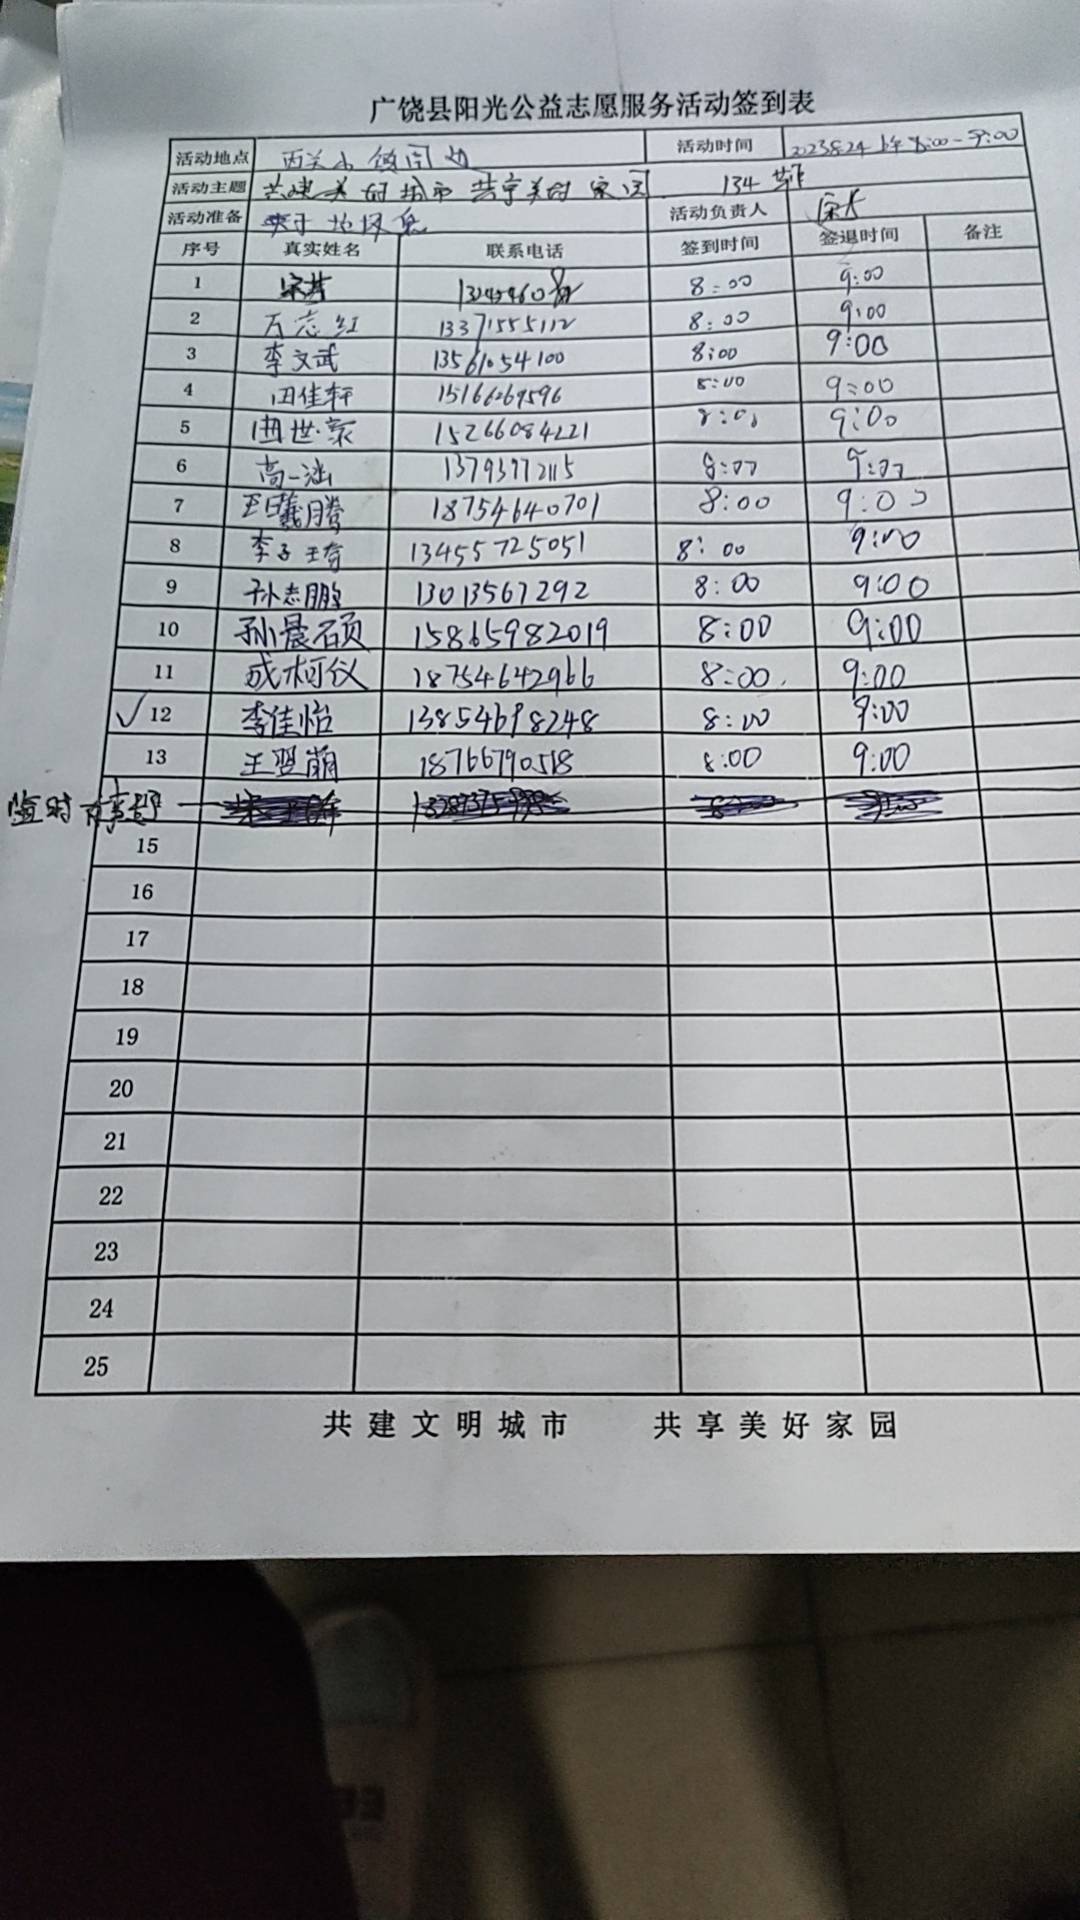 广饶县阳光公益志愿服务活动签到表
活动地点 西关小 周边 活动时间 2023.8.24 8:00-9:00
活动主题 共建美好城市 共享美好家园 134
活动准备 垃圾 活动负责人
序号 真实姓名 联系电话 签到时间 签退时间 备注
1 8:00 9:00
2 万志红 13371555112 8:00 9:00
3 李文武 13561054100 8:00 9:00
4 田佳轩 15166269596 8:00 9:00
5 世豪 15266084221 8:00 9:00
6 高一涵 13793772115 8:00 9:00
7 王曦腾 18754640701 8:00 9:00
8 李子琦 13455725051 8:00 9:00
9 孙志鹏 13013567292 8:00 9:00
10 孙晨硕 15865982019 8:00 9:00
11 成柯仪 18754642966 8:00 9:00
✓12 李佳怡 13854698248 8:00 9:00
13 王翌萌 18766790518 8:00 9:00
临时有事
15
16
17
18
19
20
21
22
23
24
25
共建文明城市 共享美好家园